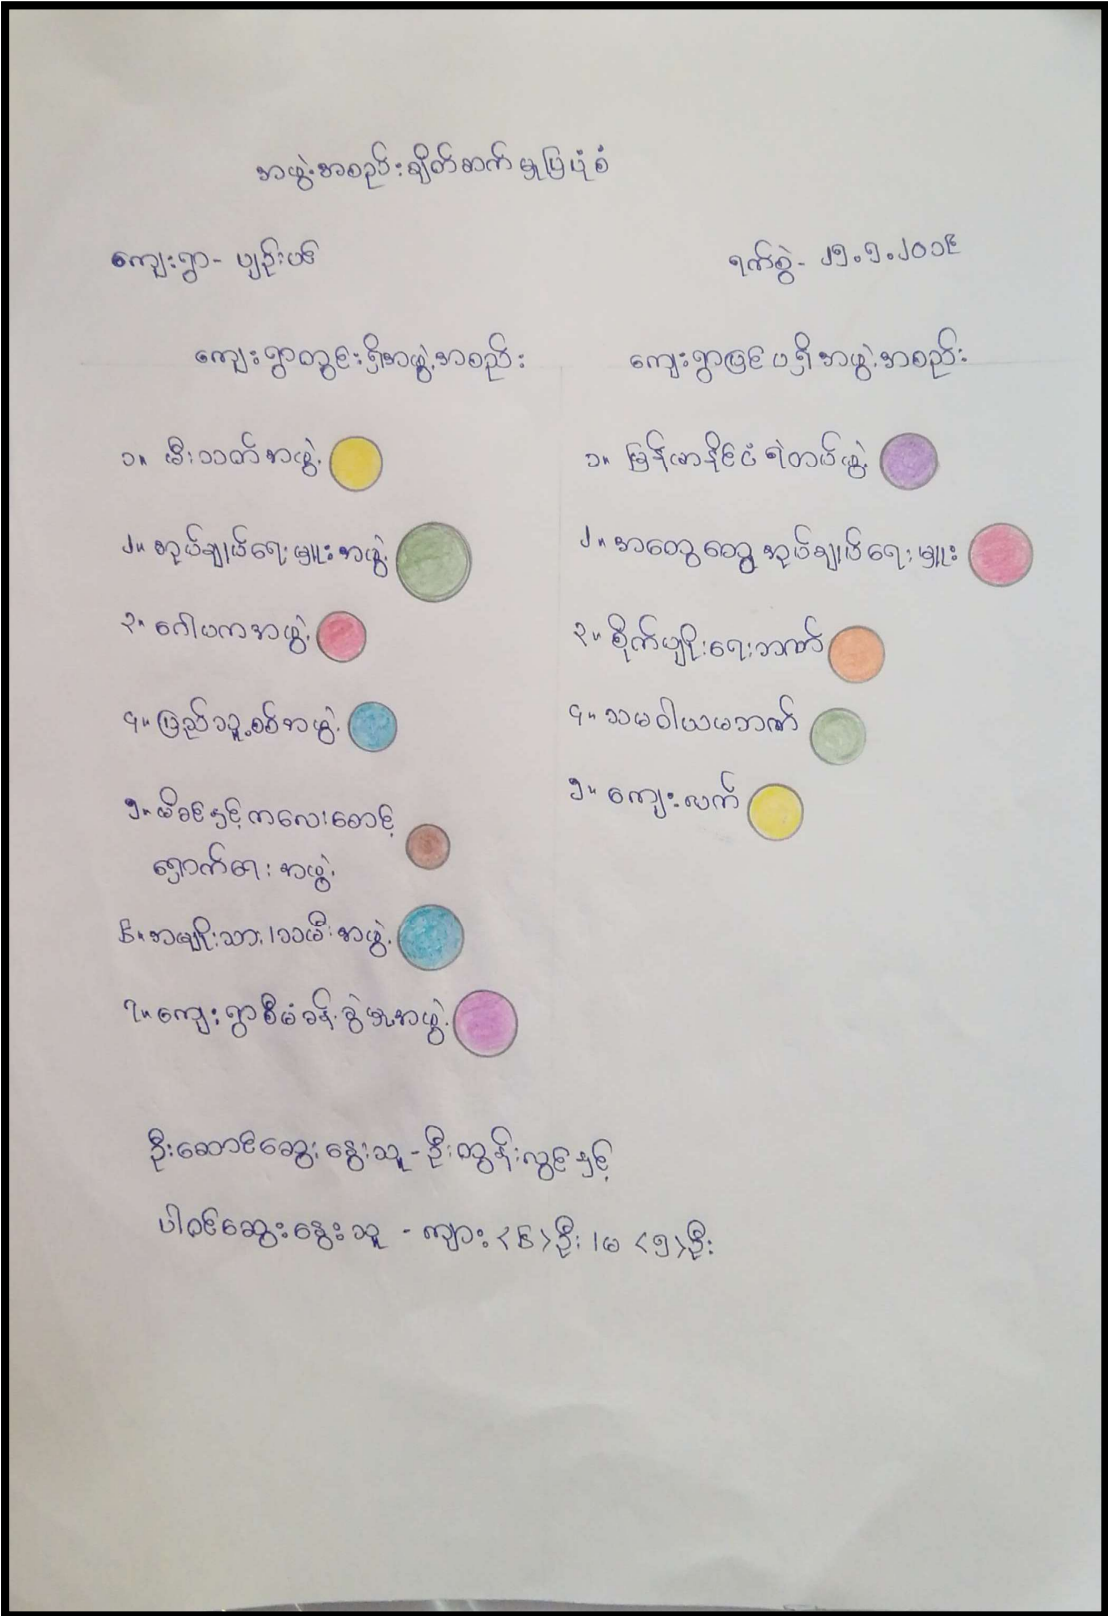 အဖွဲ့အစည်းချိတ်ဆက်မှုပြပုံစံ
ကျေးရွာ- ပျဉ်းပင်
ရက်စွဲ- ၂၅.၅.၂၀၁၉
ကျေးရွာတွင်းရှိအဖွဲ့အစည်း
ကျေးရွာပြင်ပရှိအဖွဲ့အစည်း
၁။ မီးသတ်အဖွဲ့
၂။ အုပ်ချုပ်ရေးမှူးအဖွဲ့
၃။ ဂေါပကအဖွဲ့
၄။ ပြည်သူ့စစ်အဖွဲ့
၅။ မိခင်နှင့်ကလေးစောင့်
ရှောက်ရေးအဖွဲ့
၆။ အမျိုးသား/သမီးအဖွဲ့
၇။ ကျေးရွာစီမံခန့်ခွဲမှုအဖွဲ့
၁။ မြန်မာနိုင်ငံရဲတပ်ဖွဲ့
၂။ အထွေထွေအုပ်ချုပ်ရေးမှူး
၃။ စိုက်ပျိုးရေးဘဏ်
၄။ သမဝါယမဘဏ်
၅။ ကျေးလက်
ဦးဆောင်ဆွေးနွေးသူ - ဦးထွန်းလွင်နှင့်
ပါဝင်ဆွေးနွေးသူ - ကျား <၆> ဦး /မ <၅> ဦး